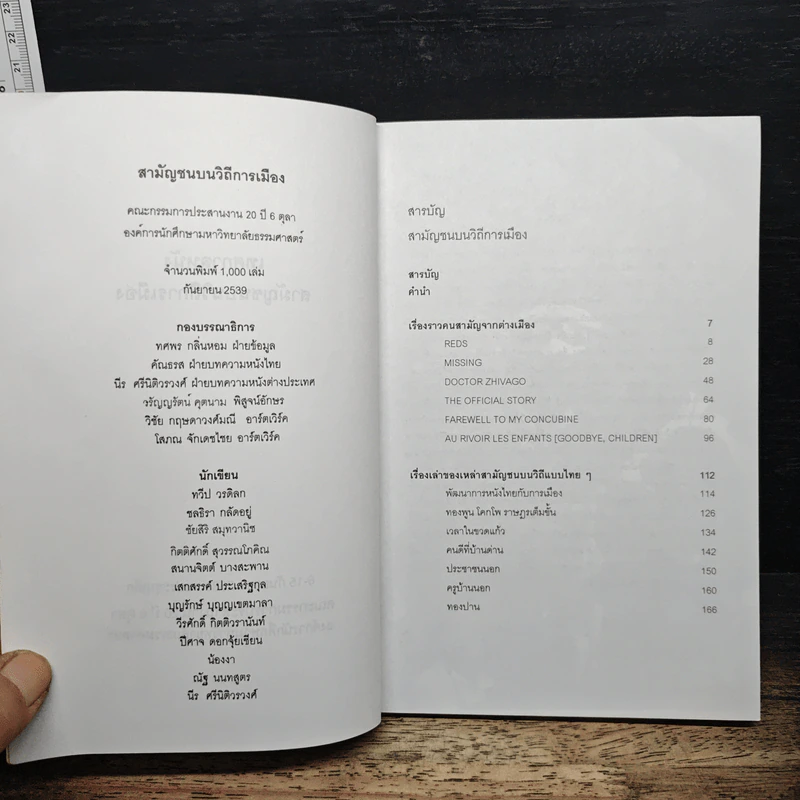 สามัญชนบนวิถีการเมือง
คณะกรรมการประสานงาน 20 ปี 6 ตุลา
องค์การนักศึกษามหาวิทยาลัยธรรมศาสตร์
จำนวนพิมพ์ 1,000 เล่ม
กันยายน 2539
กองบรรณาธิการ
ทศพร กลิ่นหอม ฝ่ายข้อมูล
คัณธรส ฝ่ายบทความหนังไทย
นีร ศรีนิติวรวงศ์ ฝ่ายบทความหนังต่างประเทศ
วรัญญรัตน์ คุตนาม พิสูจน์อักษร
วิชัย กฤษดาวงศ์มณี อาร์ตเวิร์ค
โสภณ จักเดชไชย อาร์ตเวิร์ค
นักเขียน
ทวีป วรดิลก
ชลธิรา กลัดอยู่
ชัยสิริ สมุทวานิช
กิตติศักดิ์ สุวรรณโภคิณ
สนานจิตต์ บางสะพาน
เสกสรรค์ ประเสริฐกุล
บุญรักษ์ บุญญเขตมาลา
วีรศักดิ์ กิตติวรานันท์
ปีศาจ ดอกจุ้ยเซียน
น้องงา
ณัฐ นนทสูตร
นีร ศรีนิติวรวงศ์
สารบัญ
สามัญชนบนวิถีการเมือง
สารบัญ
คำนำ
เรื่องราวคนสามัญจากต่างเมือง 7
REDS 8
MISSING 28
DOCTOR ZHIVAGO 48
THE OFFICIAL STORY 64
FAREWELL TO MY CONCUBINE 80
AU RIVOIR LES ENFANTS [GOODBYE, CHILDREN] 96
เรื่องเล่าของเหล่าสามัญชนบนวิถีแบบไทย ๆ 112
พัฒนาการหนังไทยกับการเมือง 114
ทองพูน โคกโพ ราษฎรเต็มขั้น 126
เวลาในขวดแก้ว 134
คนดีที่บ้านด่าน 142
ประชาชนนอก 150
ครูบ้านนอก 160
ทองปาน 166
23
22
21